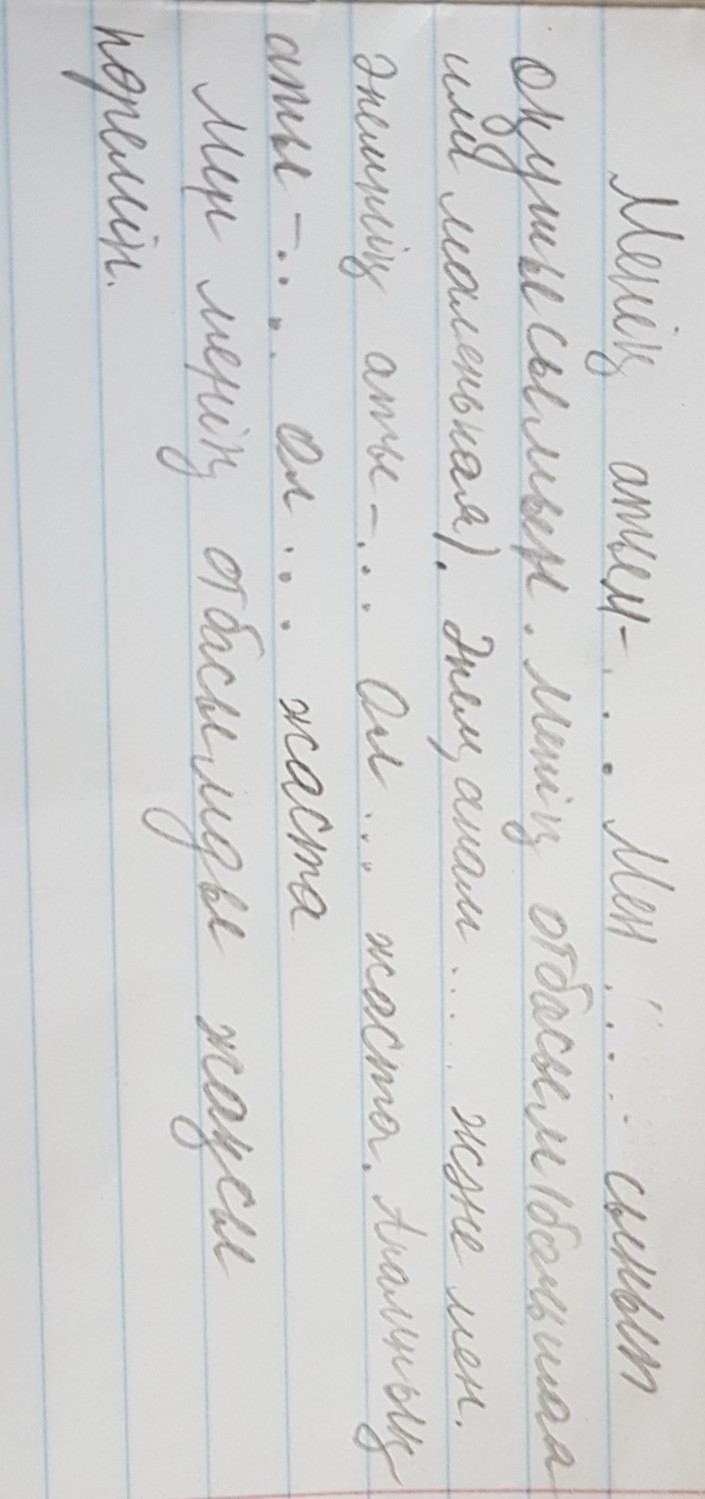 Менің атым-... Мен ... сынып
оқушысымын. Менің отбасым (большая
или маленькая). Әкем, анам .... және мен.
Әкемнің аты-... Ол ... жаста. Анамның
аты-... Ол ... жаста
Мен менің отбасымды жақсы
көремін.